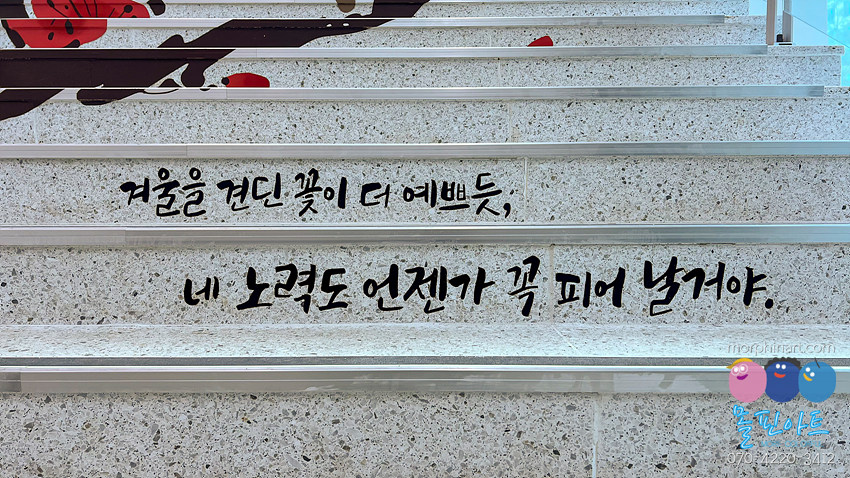 겨울을 견딘 꽃이 더 예쁘듯,
네 노력도 언젠가 꼭 피어 날거야.
morphinart.com
몰핀아트
070-4220-3412